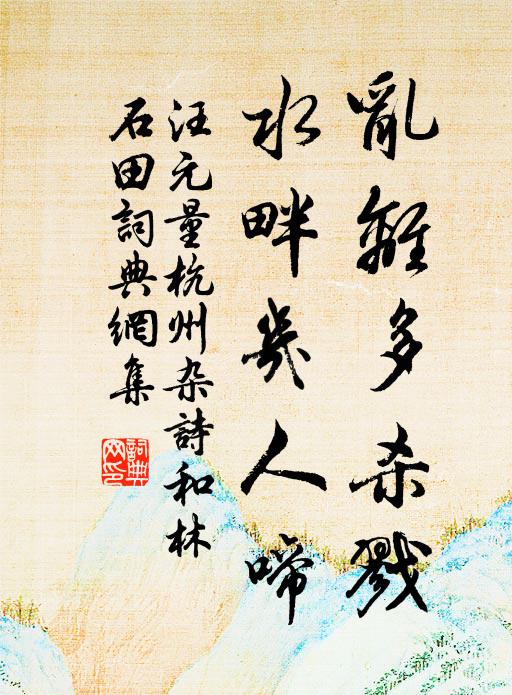 亂離多杀戮
水畔幾人啼
汪元量杭州杂詩和林
石田詞典網集
詞典网印